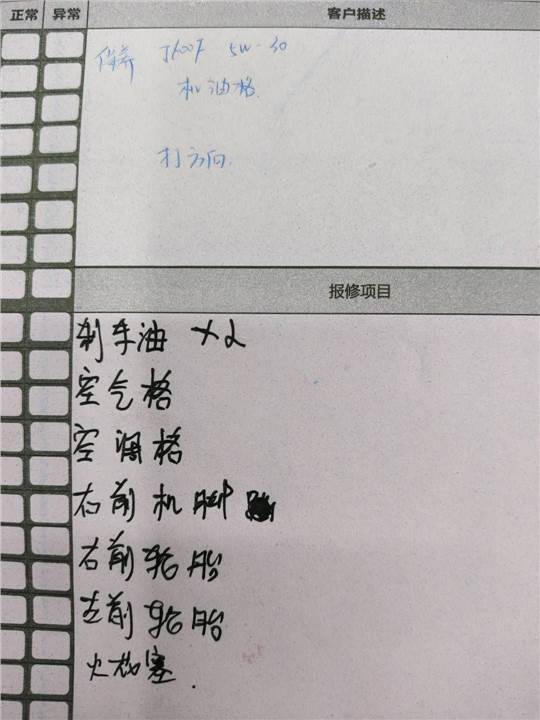 正常 异常 客户描述
保养 5W-30
机油格
打方向
报修项目
刹车油 ×2
空气格
空调格
右前机脚
右前轮胎
左前轮胎
火花塞